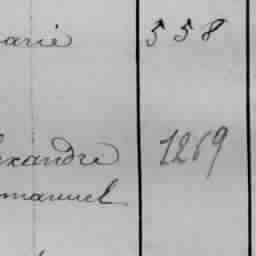 arie 558
exandre 1269
manuel